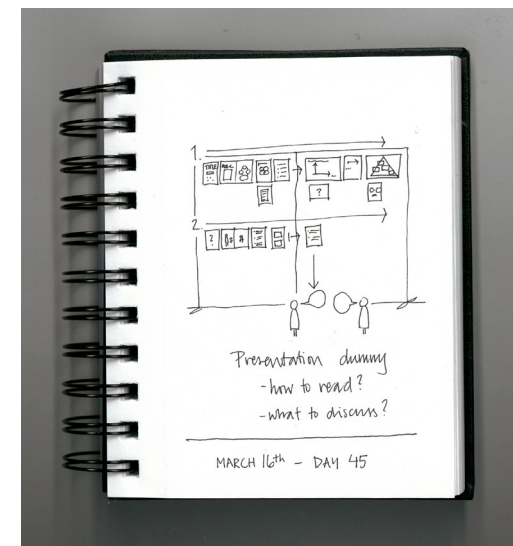 1.
TITLE
?
2.
?
Presentation dummy
- how to read?
- what to discuss?
MARCH 16th - DAY 45